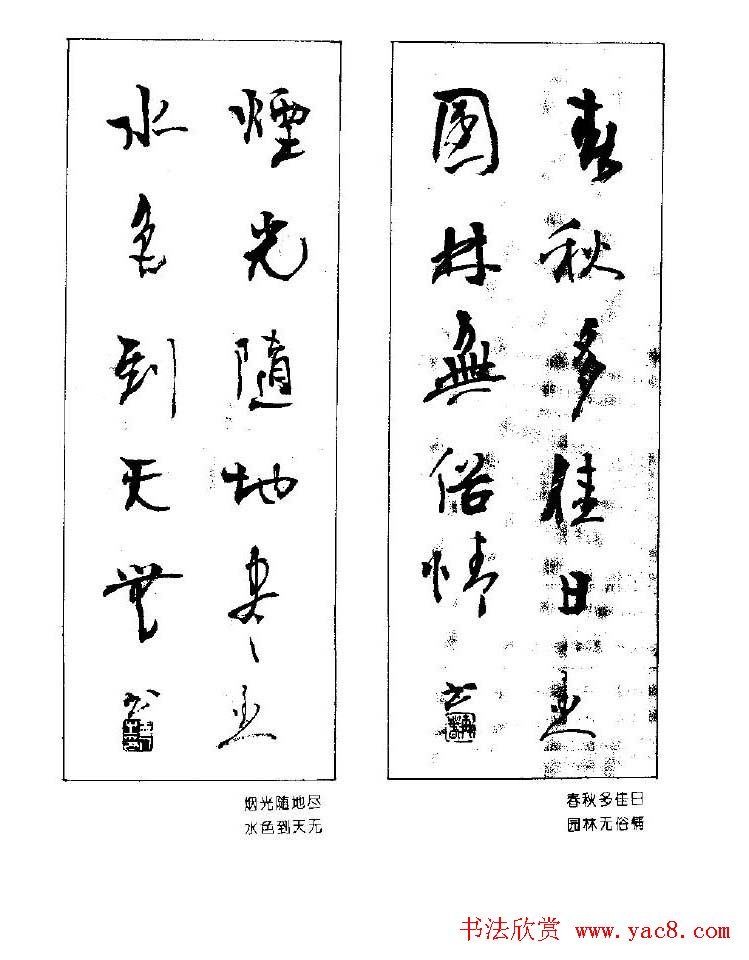 春秋多佳日
園林無俗情
煙光随地尽
水色到天無
春秋多佳日
园林无俗情
烟光随地尽
水色到天无
书法欣赏 www.yac8.com